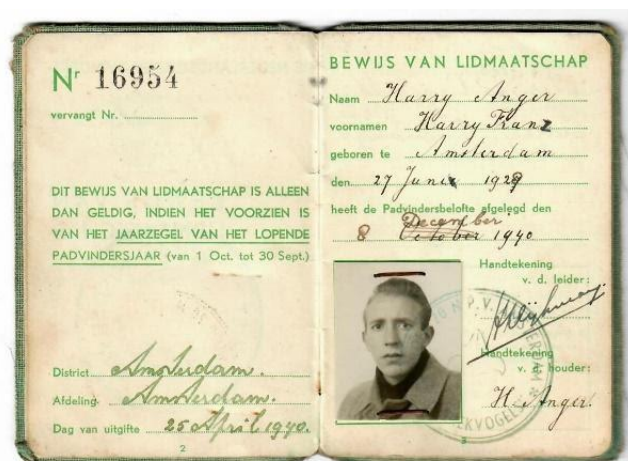 Nr 16954
vervangt Nr.
DIT BEWIJS VAN LIDMAATSCHAP IS ALLEEN
DAN GELDIG, INDIEN HET VOORZIEN IS
VAN HET JAARZEGEL VAN HET LOPENDE
PADVINDERSJAAR (van 1 Oct. tot 30 Sept.)
District Amsterdam.
Afdeling Amsterdam.
Dag van uitgifte 25 April 1940.
2
BEWIJS VAN LIDMAATSCHAP
Naam Harry Anger
voornamen Harry Franz
geboren te Amsterdam
den 27 Juni 1929
heeft de Padvindersbelofte afgelegd den
December
8 October 1940
Handtekening
v. d. leider:
N.P.V.
Handtekening
v. d. houder:
H. Anger.